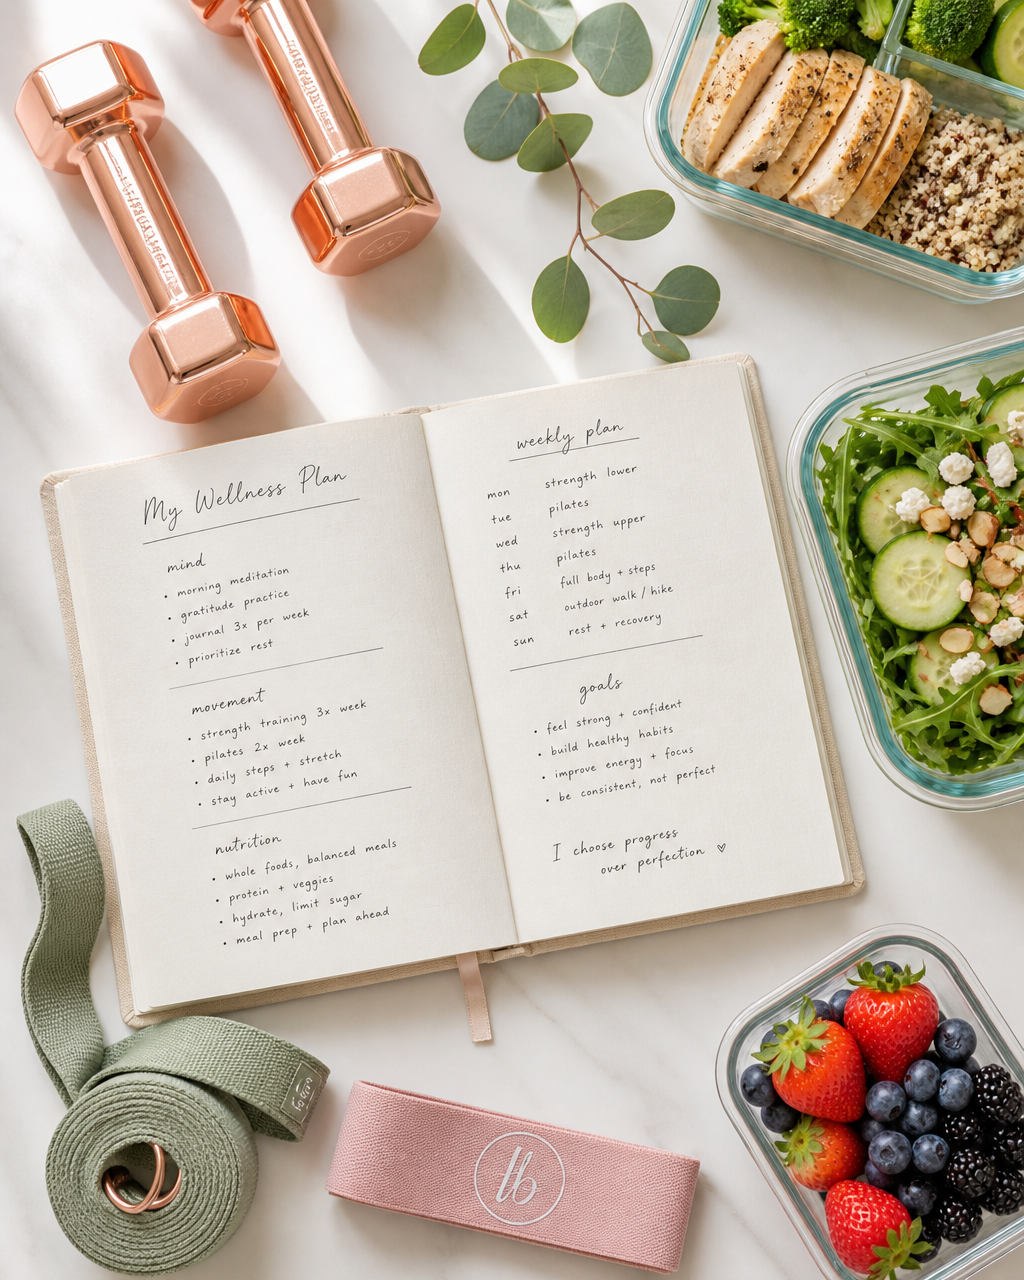 My Wellness Plan
mind
• morning meditation
• gratitude practice
• journal 3x per week
• prioritize rest
movement
• strength training 3x week
• pilates 2x week
• daily steps + stretch
• stay active + have fun
nutrition
• whole foods, balanced meals
• protein + veggies
• hydrate, limit sugar
• meal prep + plan ahead
weekly plan
mon strength lower
tue pilates
wed strength upper
thu pilates
fri full body + steps
sat outdoor walk / hike
sun rest + recovery
goals
• feel strong + confident
• build healthy habits
• improve energy + focus
• be consistent, not perfect
I choose progress
over perfection ♡
lb